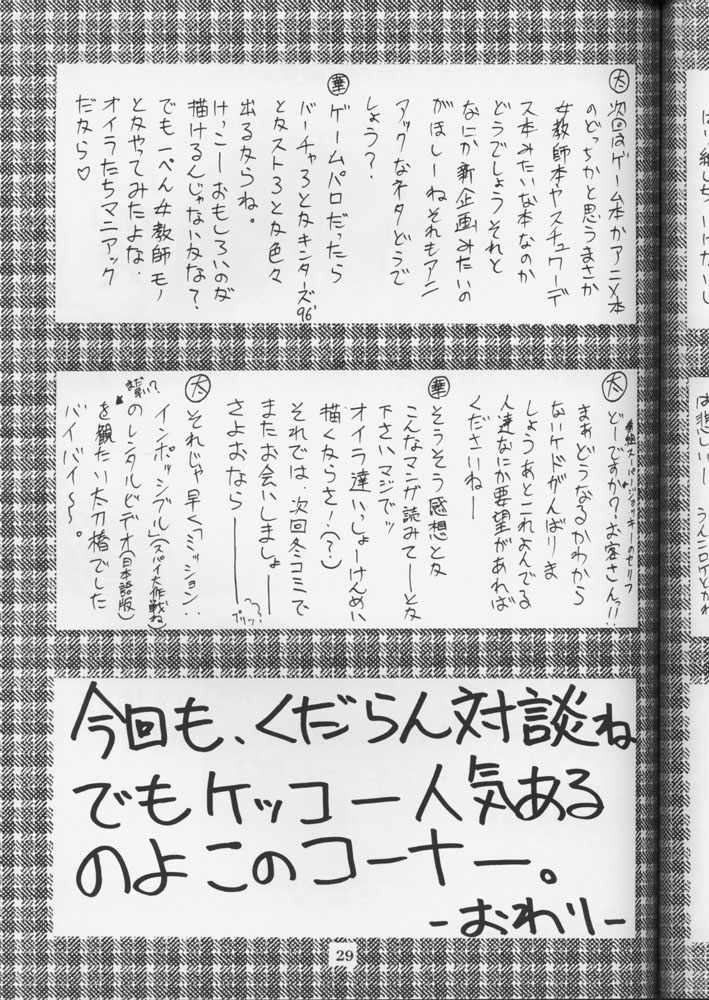 大 次回はゲーム本かアニメ本
のどっちかと思うまさか
女教師本やスチュワーデ
ス本みたいな本なのか
どうでしょうそれと
なにか新企画みたいの
がほしーねそれもアニ
アックなネタどうで
しょう?
華 ゲームパロだったら
バーチャろとかキンターズ96'
とかストろとか色々
出るからね。
けっこーおもしろいのが
描けるんじゃないかな?
でも一ぺん女教師モノ
とかやてみたよな.
オイラたちマニアック
だから♡
大 どーですか?お客さん!!
まぁどうなるかわから
ないケドがんばりま
しょうあとこれよんでる
人達なにか要望があれば
くださいねー
華 そうそう感想とか
こんなマンガ読みてーとか
下さいマジでッ
オイラ達いっしょーけんめい
描くからさ!(?)
それでは、次回冬コミで
またお会いしましょー
さよおならー
プリッ!
大 それじゃ早く「ミッション:
インポッシブル」(スパイ大作戦ね)
のレンタルビデオ(日本語版)
を観たい太刀椿でした
バイバイ〜。
今回も、くだらん対談ね
でもケッコー人気ある
のよこのコーナー。
-おわり-
29